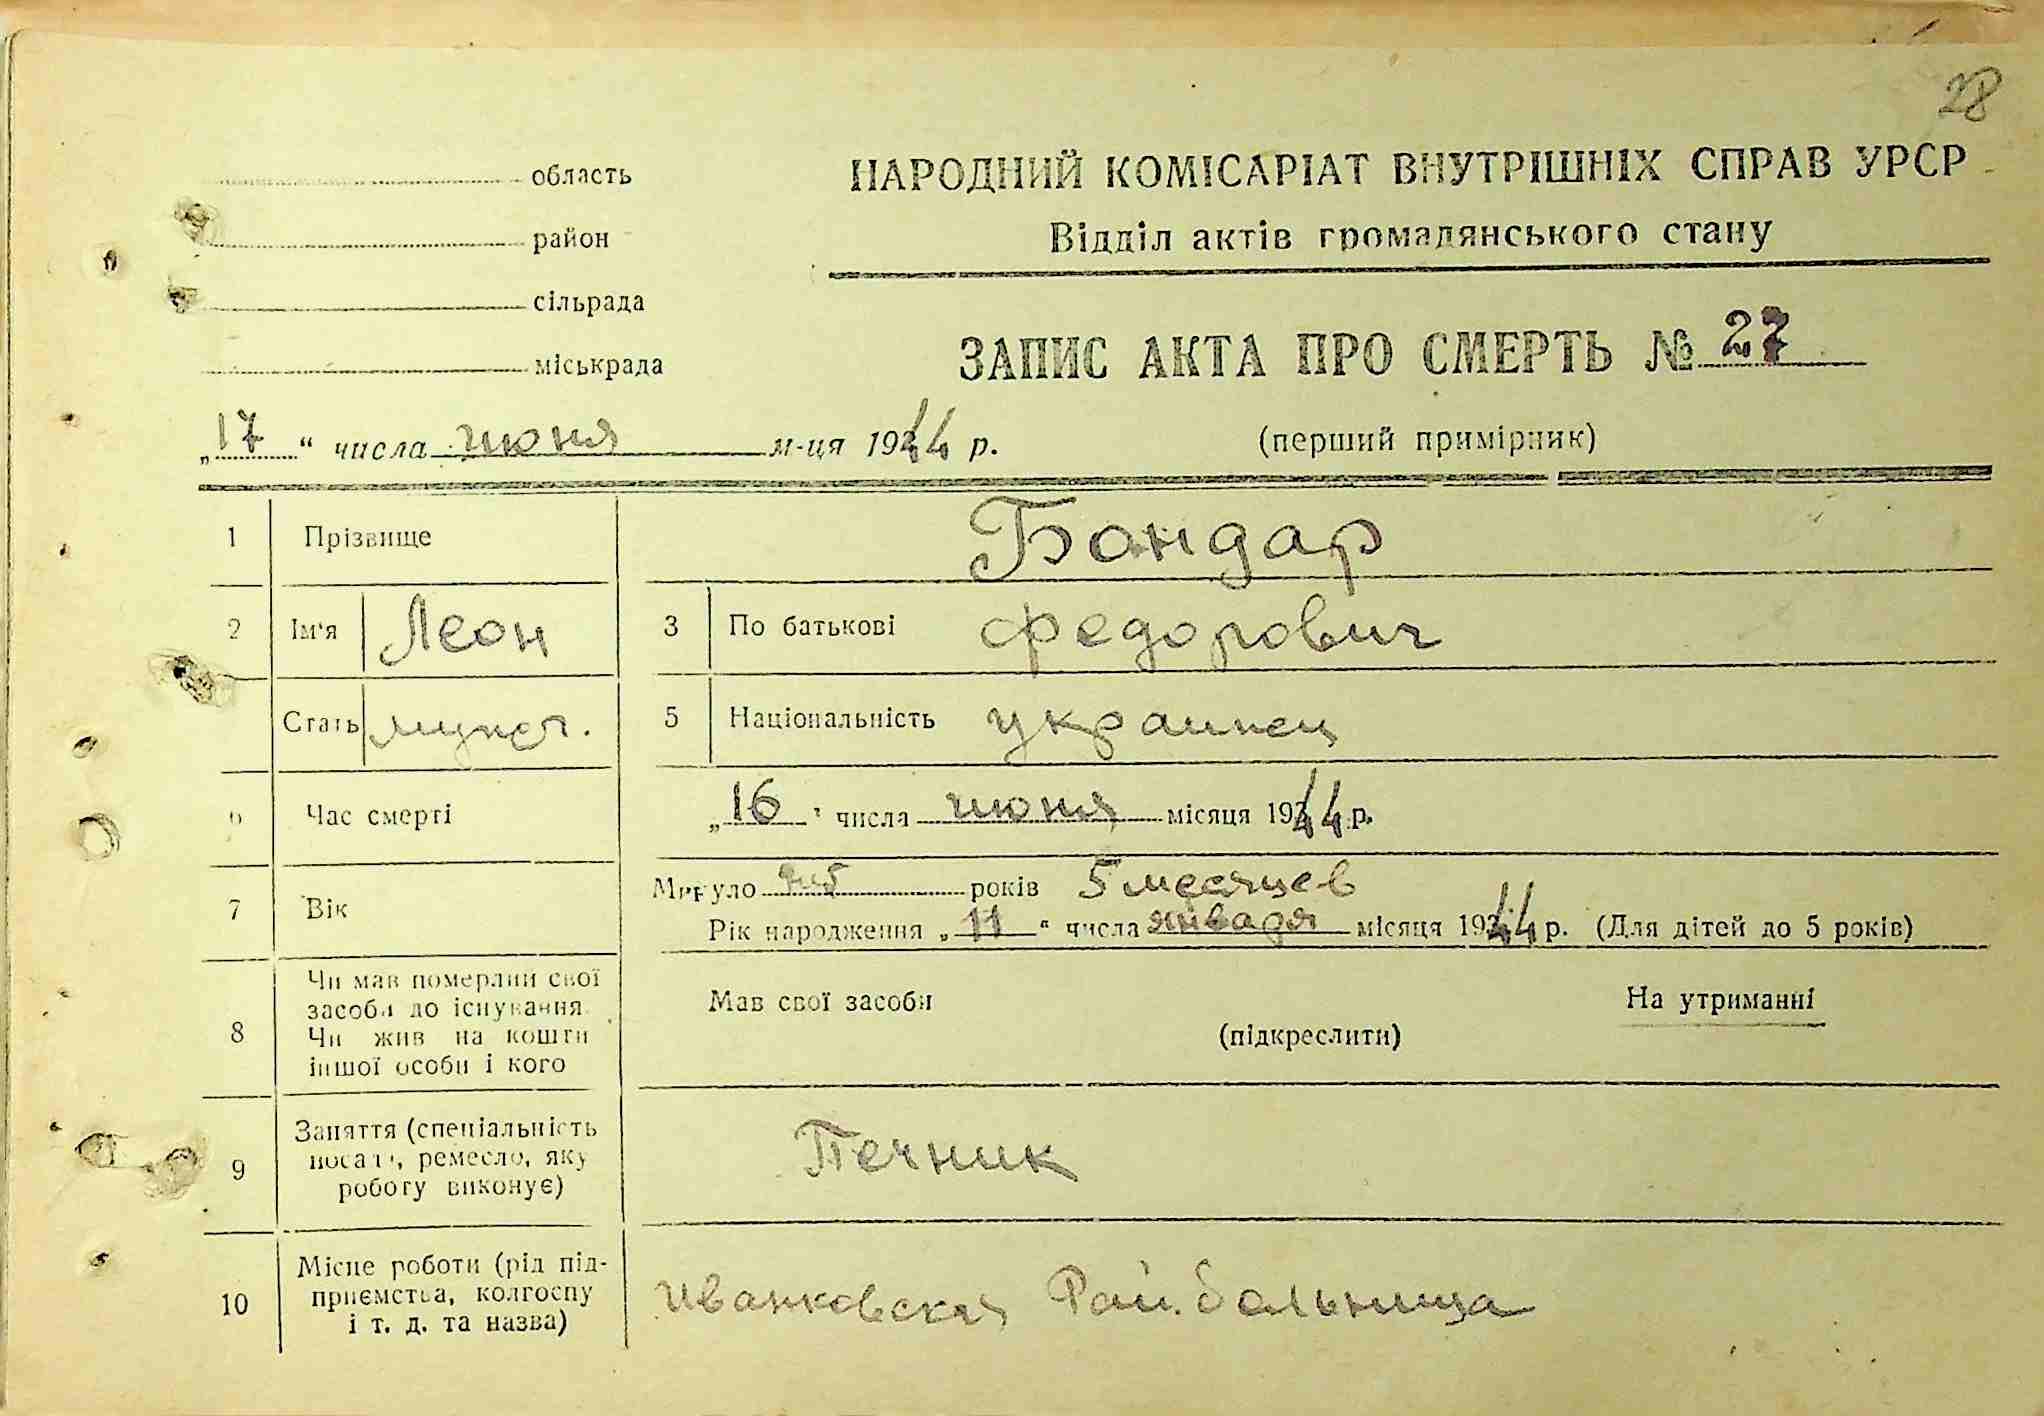 28
область
район
сільрада
міськрада
НАРОДНИЙ КОМІСАРІАТ ВНУТРІШНІХ СПРАВ УРСР
Відділ актів громадянського стану
ЗАПИС АКТА ПРО СМЕРТЬ № 27
„17“ числа июня м-ця 1944 р.
(перший примірник)
1 Прізвище Бондар
2 Ім'я Леон 3 По батькові Федорович
Стать мужск. 5 Національність украинец
6 Час смерті „16“ числа июня місяця 1944 р.
7 Вік Минуло років 5 месяцев
Рік народження „11“ числа января місяця 1944 р. (Для дітей до 5 років)
8 Чи мав померлий свої
засоби до існування.
Чи жив на кошти
іншої особи і кого
Мав свої засоби На утриманні
(підкреслити)
9 Заняття (спеціальність
посада, ремесло, яку
роботу виконує)
Печник
10 Місце роботи (рід під-
приємства, колгоспу
і т. д. та назва)
Иванковская Рай. больница